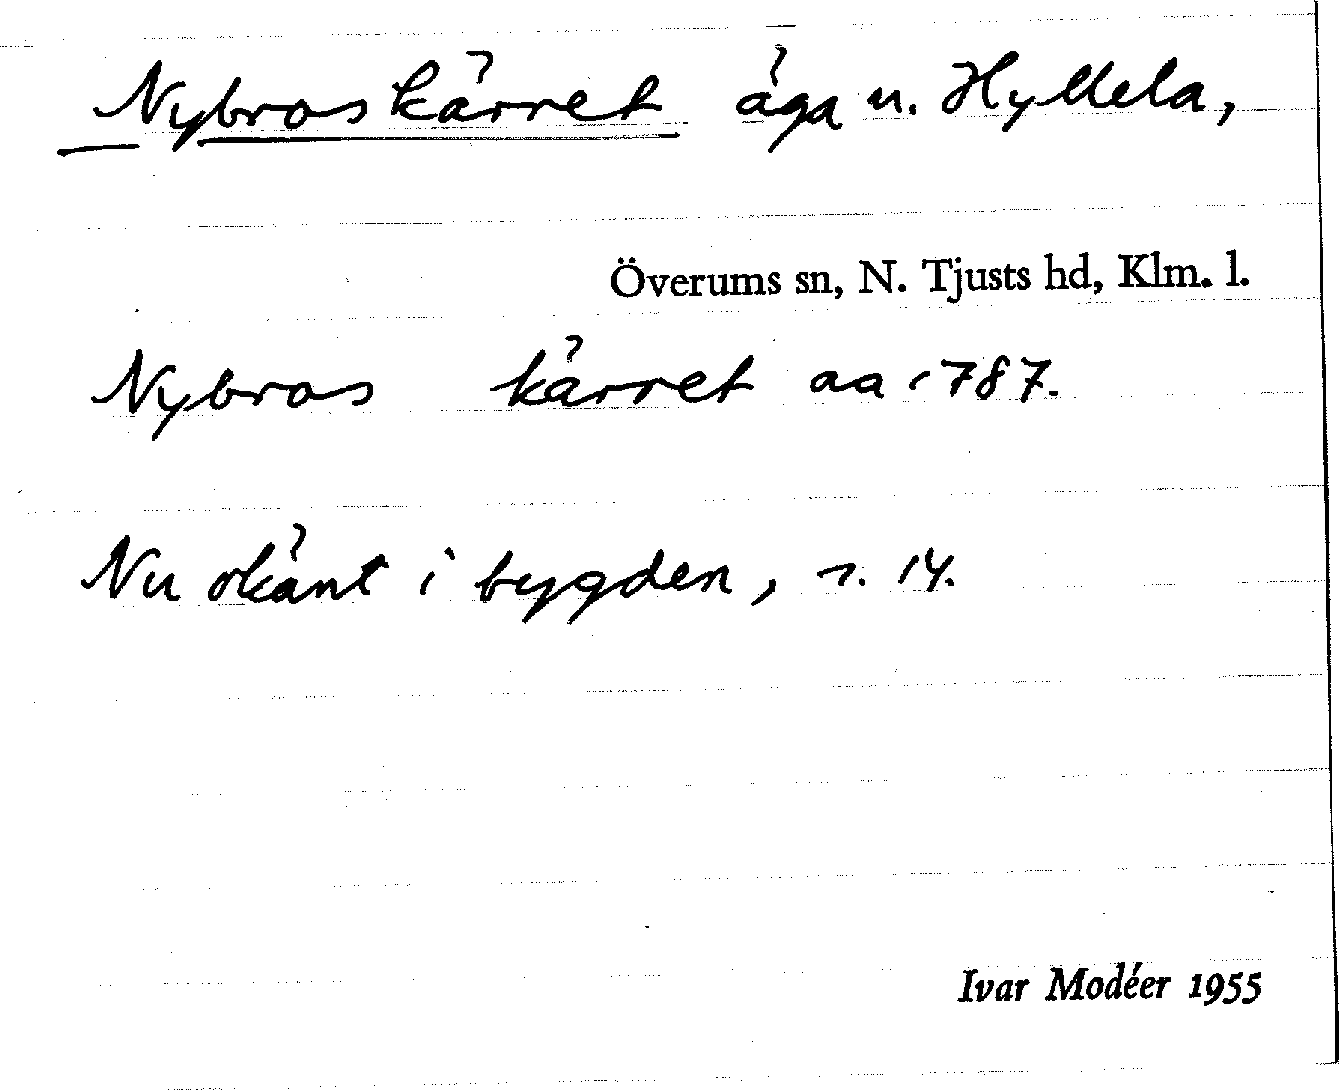 Nybroskärret äga u. Hyllela,
Överums sn, N. Tjusts hd, Klm. l.
Nybros kärret aa 1787.
Nu okänt i bygden, s. 14.
Ivar Modéer 1955